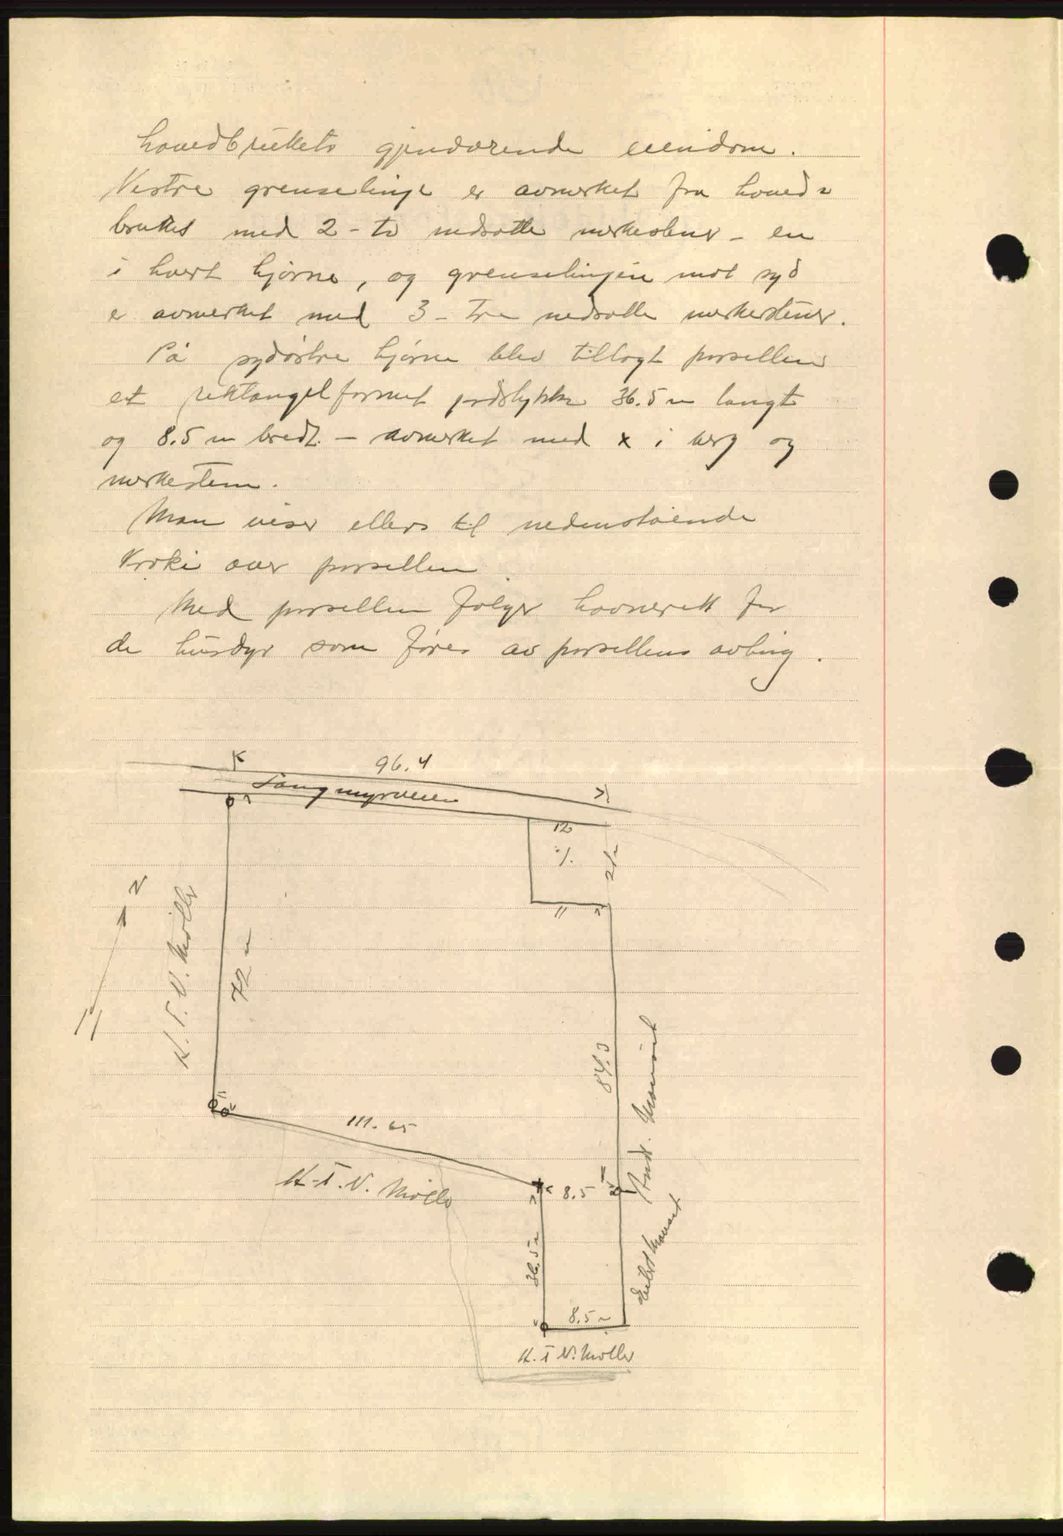 hovedbrukets gjenværende eiendom.
Vestre grenselinje er avmerket fra hoved=
bruket med 2 - to nedsatte merkestener - en
i hvert hjørne, og grenselinjen mot syd
er avmerket med 3 - tre nedsatte merkestener.
På sydøstre hjørne blev tillagt parsellen
et rektangelformet jordstykke 36.5 m langt
og 8.5 m bredt. - avmerket med x i berg og
merkesten.
Man viser ellers til nedenstående
kroki over parsellen
Med parsellen følger havnerett for
de husdyr som føres av parsellens avling.
96.4
Langmyrveien
12
·/.
21 m
11
N
K. T. N. Møller
72 m
84.3
And.
111.65
K. T. N. Møller
8.5
36.5 m
8.5 m
K. T. N. Møller